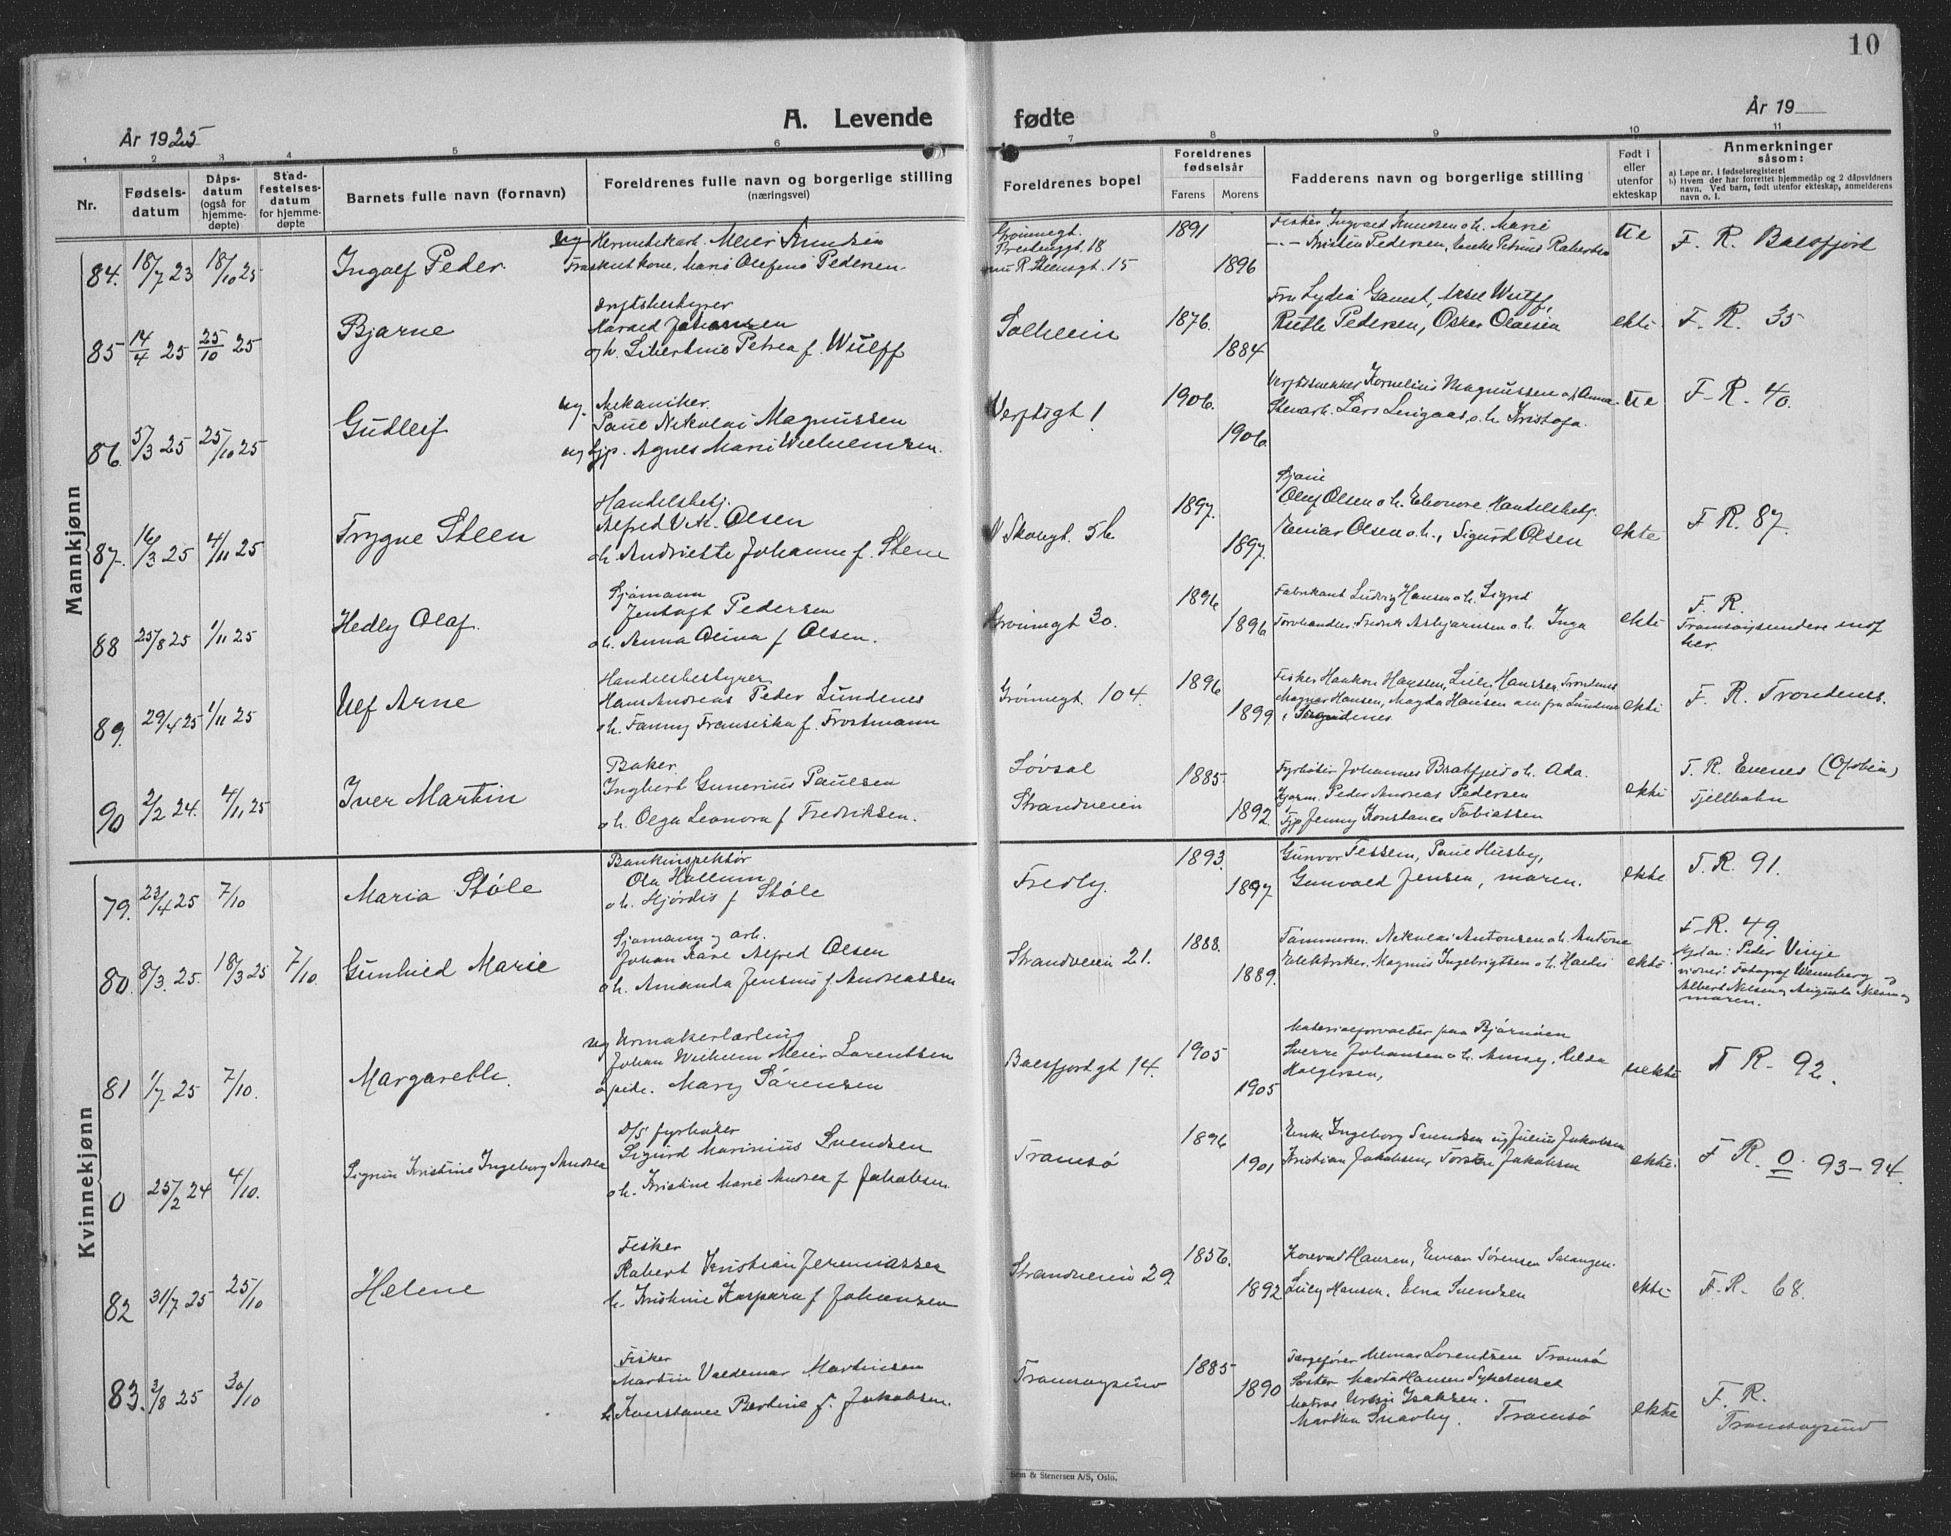 10
År 1925
A. Levende
fødte
År 19
1 2 3 4 5 6 7 8 9 10 11
Nr.
Fødsels-
datum
Dåps-
datum
(også for
hjemme-
døpte)
Stad-
festelses-
datum
for hjemme-
døpte
Barnets fulle navn (fornavn)
Foreldrenes fulle navn og borgerlige stilling
(næringsvei)
Foreldrenes bopel
Foreldrenes
fødselsår
Farens Morens
Fadderens navn og borgerlige stilling
Født i
eller
utenfor
ekteskap
Anmerkninger
såsom:
a) Løpe nr. i fødselsregisteret
b) Hvem der har forrettet hjemmedåp og 2 dåpsvidners
navn. Ved barn, født utenfor ekteskap, anmelderens
navn o. l.
Mannkjønn
84. 18/7 23 18/10 25 Ingolf Peder
ug Hermetikarb. Meier Knudsen
Fraskilt kone, Marie Olefine Pedersen
Grønnegt.
18
nu R. Steensgt. 15
1891
1896
Fisker Ingvald Knudsen o.h. Marie
Pedersen, Enke Petrine
ue
F. R. Balsfjord
85 14/4 25 25/10 25 Bjarne
Driftsbestyrer
Harald Johansen
o.h. Libertine Petrea f. Wulff
Solheim
1876.
1884
Fru Lydia Aksel Wulff,
Ruth Pedersen, Oskar Olaisen
ekte
F. R. 35
86. 5/3 25 25/10 25 Gudleif
ug. Mekaniker.
Paul Nikolai Magnussen
ug pp. Agnes Marie Wilhelmsen.
Verftsgt 1
1906.
1906.
Kornelius Magnussen Anna
Lars o.h. Kristofa.
ue
F. R. 40.
87. 16/3 25 4/11 25 Trygve Steen
Handelsbetj.
Alfred Olsen
o.h. Andriette Johanne f. Stene
V Skolegt. 5b
1897.
1897.
Olaf Olsen o.h. Eleonore. Handelsbetj.
Einar Olsen o.h., Sigurd Olsen
ekte
F. R. 87.
88 25/8 25 1/11 25 Hedly Olaf.
Sjømann
Jentoft Pedersen
o.h. Anna Olina f Olsen.
Grønnegt 30.
1896
1896
Fabrikant Ludvig Hansen o.h. Sigrid
Torvhandler. Fredrik Asbjørnsen o.h. Inga
ekte
F. R.
Tromsøysundere
her.
89. 29/4 25 1/11 25 Ulf Arne
Handelsbestyrer
Hans Andreas Peder Lundenes
o.h. Fanny Fransiska f. Frostmann
Grønnegt. 104.
1896
1899
Fisker Haakon Hansen, Trondenes
Magnar Hansen, Magda Hansen
ekte
F. R. Trondenes.
90 2/2 24. 4/11 25 Iver Martin
Baker.
Ingbert Gunerius Paulsen
o.h. Olga Leonora f Fredriksen.
Løvsal
Strandveien
1885.
1892.
Fyrbøter Johannes o.h. Ada.
Peder Andreas Pedersen
Jenny Konstance Tobiassen
ekte
F. R. Evenes (Ofoten)
Kvinnekjønn
79. 23/4 25 7/10 Maria Støle
Bankinspektør
Ola Hallum
o.h. Hjørdis f Støle
Fredly.
1893.
1897
Gunvor Tessem, Paul Husby,
Gunvald Jensen, moren.
ekte
F. R. 91.
80. 8/3. 25. 18/3 25 7/10. Gunhild Marie
Sjømann og arb.
Johan Kare Alfred Olsen
o.h. Amanda Jensine f Andreassen
Strandveien 21.
1888.
1889.
Tømmerm. Nikolai Antonsen o.h. Antone
Elektriker. Magnus Ingebrigtsen o.h.
ekte
F. R. 49.
Peder
vidner: Fotograf Wennberg og
Albert Nilsen og Augusta Nilsen og
moren.
81 1/7 25 7/10. Margareth.
ug Urmakerlærling
Johan Wilhelm Meier Lorentsen
o pike. Mary Sørensen
Balsfjordgt 14.
1905
1905
Materialforvalter paa Bjørnøen
Sverre Johansen o.h.
Holgersen,
uekte
F R. 92.
0 25/2 24 4/10. Sigrun Kristine Ingeborg Andrea
D/S fyrbøter
Sigurd Marinius Svendsen
o.h. Kristine Marie Andrea f Jakobsen.
Tromsø
1896
1901
Enke Ingeborg Svendsen og Julius Jakobsen
Kristian Jakobsen, Jakobsen
ekte.
F R. 0. 93-94.
82 31/7 25 25/10 Helene
Fisker
Robert Kristian Jeremiassen
h. Kristine Kaspara f Johansen
Strandveien 29
1856.
1892
Hansen, Einar Sørensen Salangen.
Lilly Hansen. Edna Svendsen
ekte
F. R. 68.
83. 3/8 25 30/10
Fisker
Martin Valdemar Martinsen
h. Konstance Bertine f. Jakobsen.
Tromsøysund
1885
1890
Færgefører Lorendtsen Tromsø
Søster Marta Hansen Sykehuset
Isaksen.
Tromsø
ekte
F. R.
Tromsøysund
Sem & Stenersen A/S, Oslo.